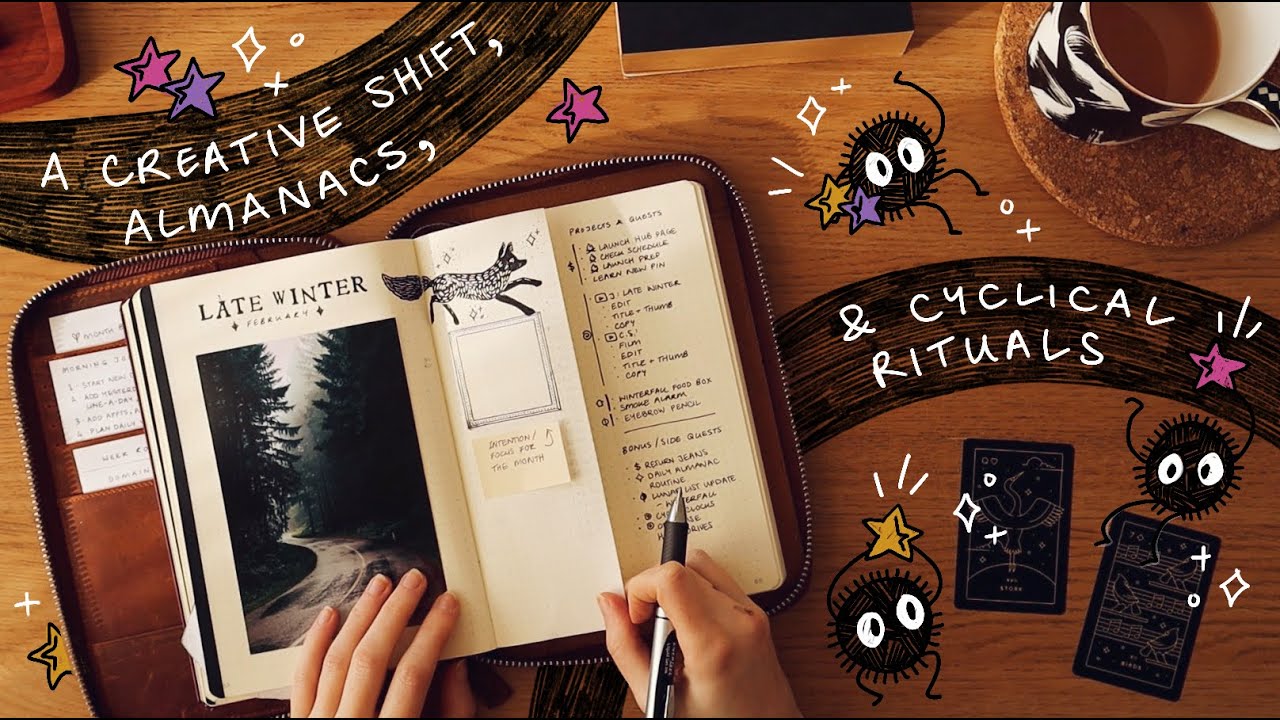 A CREATIVE SHIFT,
ALMANACS,
& CYCLICAL
RITUALS
LATE WINTER
FEBRUARY
MONTH
MORNING
1 - START NEW
2 - ADD
LINE-A-DAY
3 - ADD APPTS,
4 - PLAN DAILY
WEEK
DOMAIN
INTENTION/
FOCUS FOR
THE MONTH
PROJECTS & QUESTS
LAUNCH HUB PAGE
CHECK SCHEDULE
LAUNCH PREP
LEARN NEW PIN
J: LATE WINTER
EDIT
TITLE + THUMB
COPY
C.S.:
FILM
EDIT
TITLE + THUMB
COPY
WINTERFALL FOOD BOX
SMOKE ALARM
EYEBROW PENCIL
BONUS/SIDE QUESTS
$ RETURN JEANS
DAILY ALMANAC
ROUTINE
LUNAR LIST UPDATE
- WINTERFALL
CLOCKS
DRIVES
STORK
7
BIRDS